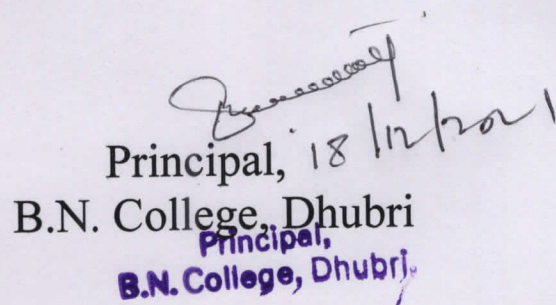 Principal, 18/12/2021
B.N. College, Dhubri
Principal,
B.N. College, Dhubri.